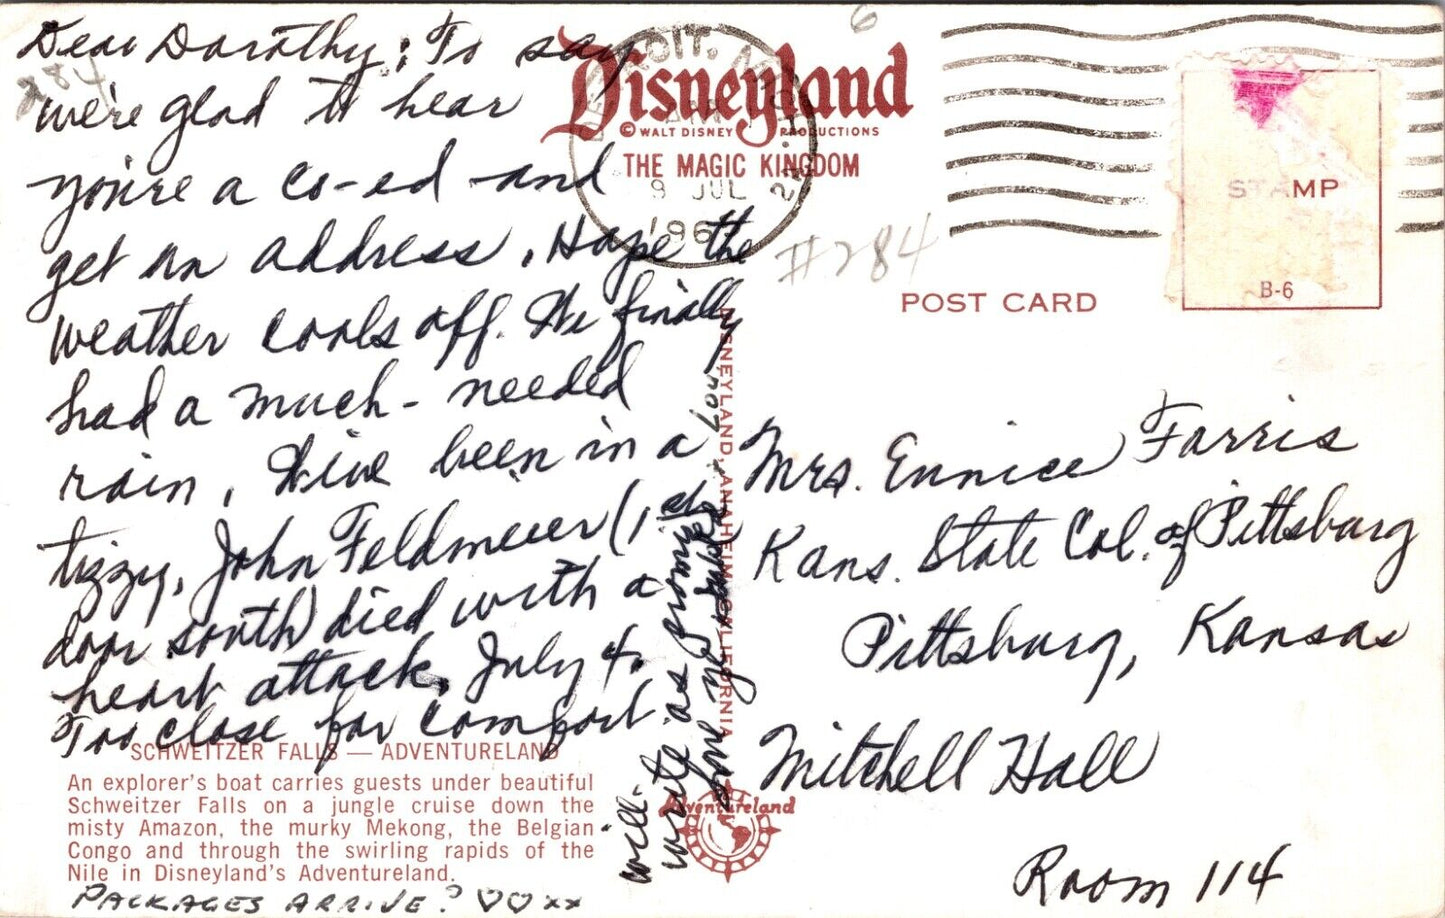 Dear Dorothy; To say
we're glad to hear
you're a co-ed and
get an address. Hope the
weather cools off. We finally
had a much-needed
rain. We've been in a
tizzy, John Feldmeier (1st
door south) died with a
heart attack, July 4.
Too close for comfort.
will
write as promised
Love ya
Lou
PACKAGES ARRIVE? ♡♡xx
284
SCHWEITZER FALLS — ADVENTURELAND
An explorer's boat carries guests under beautiful
Schweitzer Falls on a jungle cruise down the
misty Amazon, the murky Mekong, the Belgian
Congo and through the swirling rapids of the
Nile in Disneyland's Adventureland.
Disneyland
© WALT DISNEY PRODUCTIONS
THE MAGIC KINGDOM
DETROIT, MICH.
AM
9 JUL
196
6
#284
DISNEYLAND, ANAHEIM, CALIFORNIA
Adventureland
POST CARD
STAMP
B-6
Mrs. Ennice Farris
Kans. State Col. of Pittsburg
Pittsburg, Kansas
Mitchell Hall
Room 114